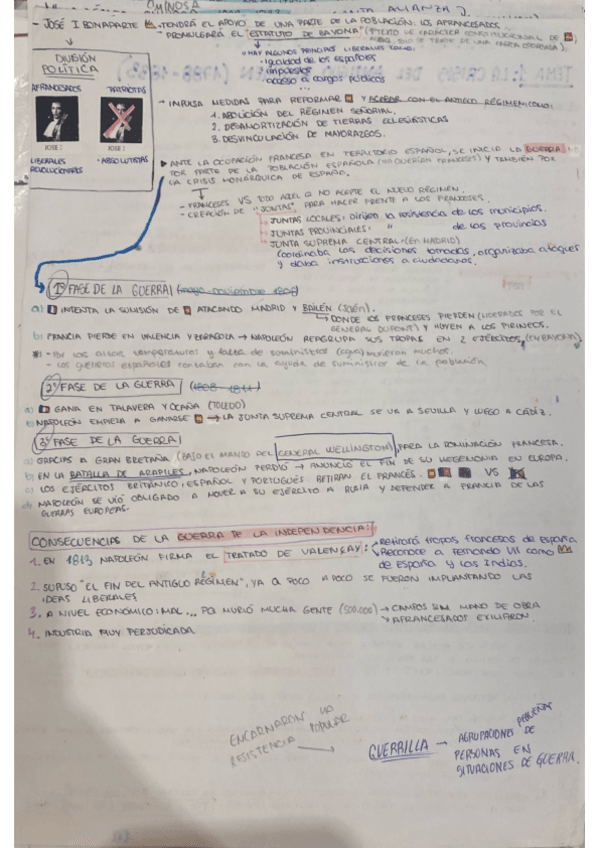 OMINOSA
ALIANZA).
- JOSÉ I BONAPARTE TENDRÁ EL APOYO DE UNA PARTE DE LA POBLACIÓN: LOS AFRANCESADOS.
- PROMULGARÁ EL "ESTATUTO DE BAYONA" (TEXTO DE CARÁCTER CONSTITUCIONAL DE
SINO SE TRATA DE UNA CARTA OTORGADA).
HAY ALGUNOS PRINCIPIOS LIBERALES COMO:
igualdad de los españoles
impuestos
acceso a cargos públicos
DIVISIÓN
POLÍTICA
AFRANCESADOS
PATRIOTAS
JOSE I
JOSE I
LIBERALES
REVOLUCIONARIOS
• ABSOLUTISTAS
→ IMPULSA MEDIDAS PARA REFORMAR Y ACABAR CON EL ANTIGUO RÉGIMEN, COMO:
1. ABOLICIÓN DEL RÉGIMEN SEÑORIAL.
2. DESAMORTIZACIÓN DE TIERRAS ECLESIÁSTICAS
3. DESVINCULACIÓN DE MAYORAZGOS.
ANTE LA OCUPACIÓN FRANCESA EN TERRITORIO ESPAÑOL, SE INICIA LA GUERRA
POR PARTE DE LA POBLACIÓN ESPAÑOLA (NO QUERÍAN FRANCESES) Y TAMBIÉN POR
LA CRISIS MONÁRQUICA DE ESPAÑA.
- FRANCESES VS TODO AQUEL Q NO ACEPTE EL NUEVO RÉGIMEN.
- CREACIÓN DE "JUNTAS" PARA HACER FRENTE A LOS FRANCESES.
JUNTAS LOCALES: dirigen la resistencia de los municipios.
JUNTAS PROVINCIALES: " de las provincias
JUNTA SUPREMA CENTRAL (En MADRID)
(coordinaba las decisiones tomadas, organizaba ataques
y daba instrucciones a ciudadanos.
1º FASE DE LA GUERRA (mayo-noviembre 1808)
a) INTENTA LA SUMISIÓN DE ATACANDO MADRID Y BAILÉN (Jaén).
DONDE LOS FRANCESES PIERDEN (LIDERADOS POR EL
GENERAL DUPONT) Y HUYEN A LOS PIRINEOS.
b) FRANCIA PIERDE EN VALENCIA Y ZARAGOZA → NAPOLEÓN REAGRUPA SUS TROPAS EN 2 EJÉRCITOS
- Por las altas temperaturas y falta de suministros (agua) murieron muchos.
- Los guerreros españoles contaban con la ayuda de suministros de la población
2º FASE DE LA GUERRA (1808 - 1811)
a) GANA EN TALAVERA Y OCAÑA (TOLEDO)
b) NAPOLEÓN EMPIEZA A GANARSE → LA JUNTA SUPREMA CENTRAL SE VA A SEVILLA Y LUEGO A CÁDIZ.
3º FASE DE LA GUERRA
a) GRACIAS A GRAN BRETAÑA (BAJO EL MANDO DEL GENERAL WELLINGTON), PARA LA DOMINACIÓN FRANCESA.
b) EN LA BATALLA DE ARAPILES, NAPOLEÓN PERDIÓ → ANUNCIÓ EL FIN DE SU HEGEMONÍA EN EUROPA.
c) LOS EJÉRCITOS BRITÁNICO, ESPAÑOL Y PORTUGUÉS RETIRAN EL FRANCÉS. VS
d) NAPOLEÓN SE VIO OBLIGADO A MOVER A SU EJÉRCITO A RUSIA Y DEFENDER A FRANCIA DE LAS
GUERRAS EUROPEAS.
CONSECUENCIAS DE LA GUERRA DE LA INDEPENDENCIA:
1. EN 1813 NAPOLEÓN FIRMA EL TRATADO DE VALENÇAY:
Retirará tropas francesas de España
Reconoce a Fernando VII como
de España y las Indias.
2. SUPUSO "EL FIN DEL ANTIGUO RÉGIMEN", YA Q POCO A POCO SE FUERON IMPLANTANDO LAS
IDEAS LIBERALES
3. A NIVEL ECONÓMICO: MAL... PQ MURIÓ MUCHA GENTE (500.000) → CAMPOS SIN MANO DE OBRA
AFRANCESADOS EXILIARON.
4. INDUSTRIA MUY PERJUDICADA
ENCARNARON LA
RESISTENCIA POPULAR
GUERRILLA → AGRUPACIONES PEQUEÑAS DE
PERSONAS EN
SITUACIONES DE GUERRA.